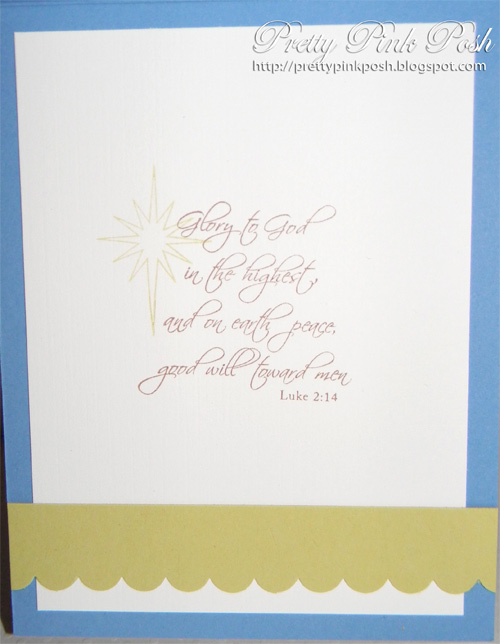 Pretty Pink Posh
http://prettypinkposh.blogspot.com
Glory to God
in the highest,
and on earth peace,
good will toward men
Luke 2:14